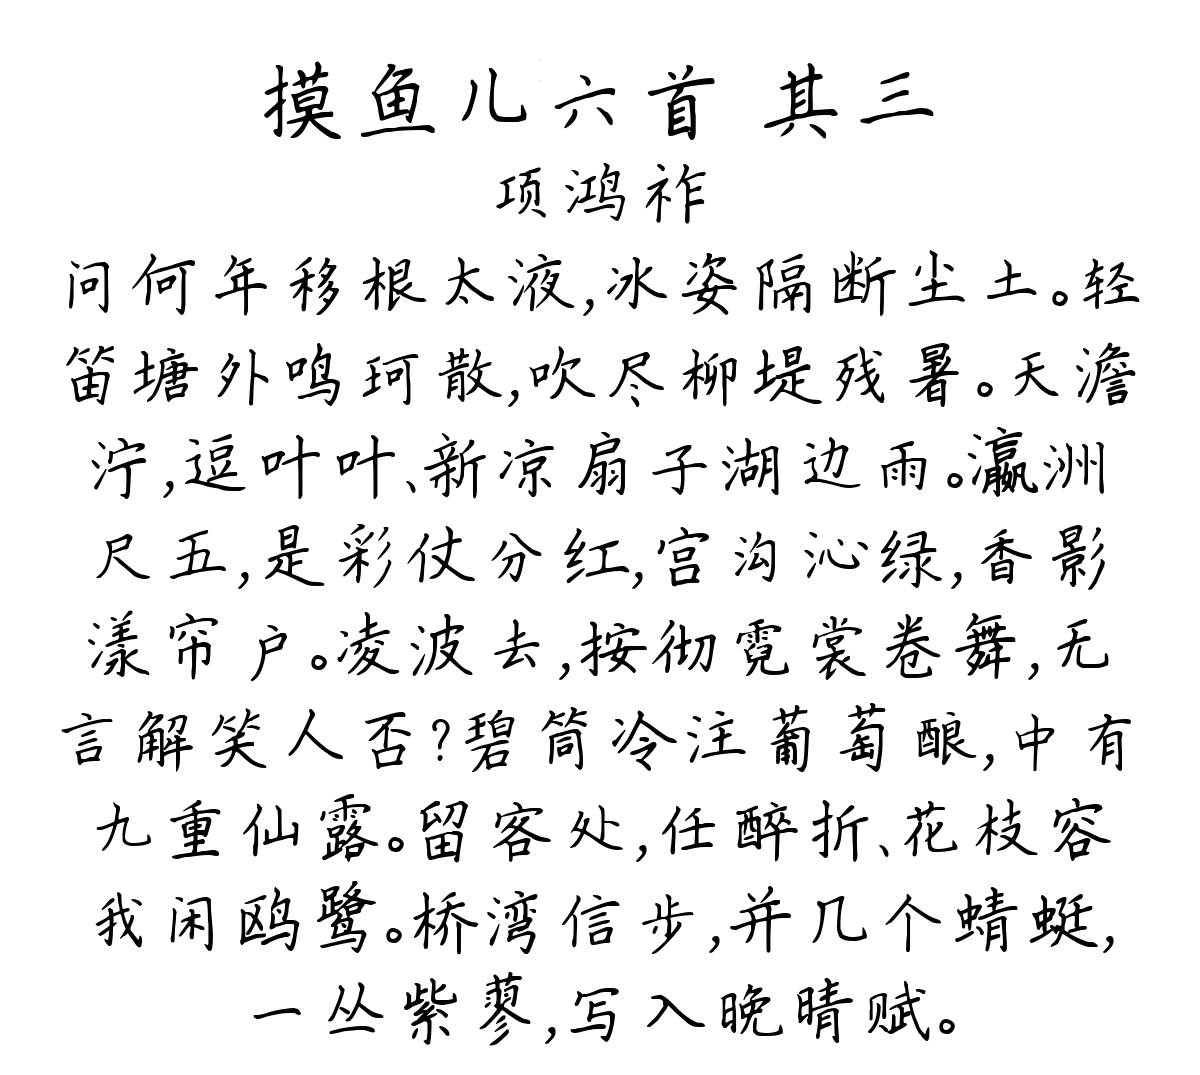 摸鱼儿六首 其三
项鸿祚
问何年移根太液,冰姿隔断尘土。轻
笛塘外鸣珂散,吹尽柳堤残暑。天澹
泞,逗叶叶、新凉扇子湖边雨。瀛洲
尺五,是彩仗分红,宫沟沁绿,香影
漾帘户。凌波去,按彻霓裳卷舞,无
言解笑人否?碧筒冷注葡萄酿,中有
九重仙露。留客处,任醉折、花枝容
我闲鸥鹭。桥湾信步,并几个蜻蜓,
一丛紫蓼,写入晚晴赋。